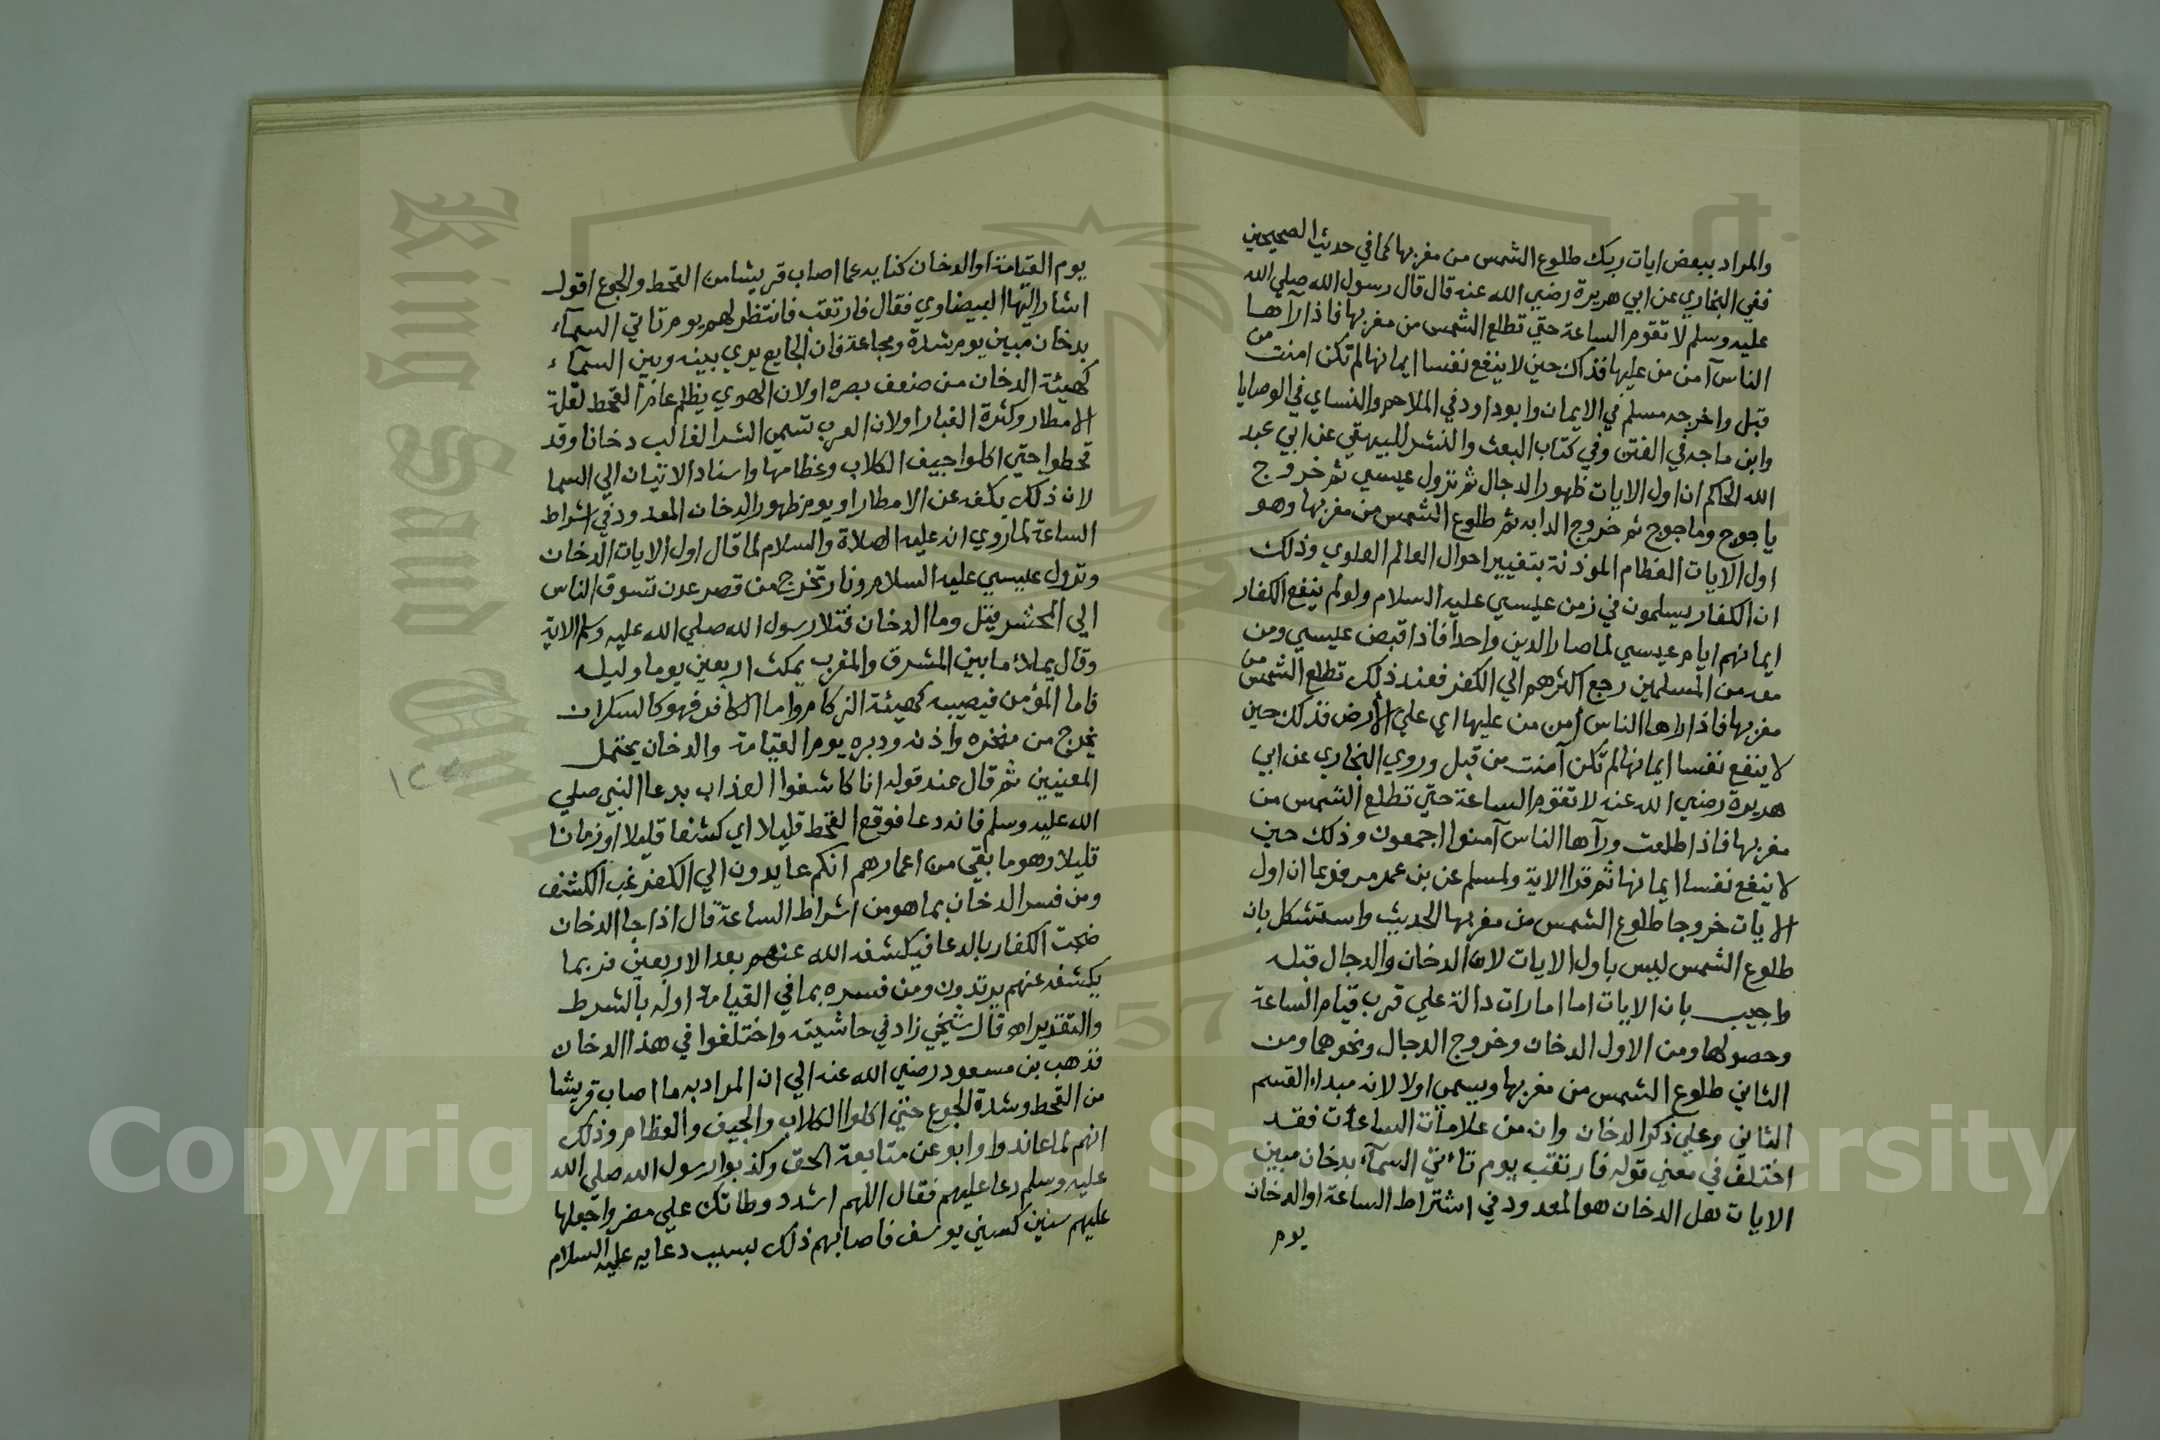 والمراد ببعض ايات ربك طلوع الشمس من مغربها كما في حديث الصحيحين
ففي البخاري عن ابي هريرة رضي الله عنه قال قال رسول الله صلي الله
عليه وسلم لا تقوم الساعة حتي تطلع الشمس من مغربها فاذا رآها
الناس آمن من عليها فذاك حين لا ينفع نفسا ايمانها لم تكن امنت من
قبل واخرجه مسلم في الايمان وابو داود في الملاحم والنساي في الوصايا
وابن ماجه في الفتن وفي كتاب البعث والنشر للبيهقي عن ابي عبد
الله الحاكم ان اول الايات ظهور الدجال ثم نزول عيسي ثم خروج
ياجوج وماجوج ثم خروج الدابه ثم طلوع الشمس من مغربها وهو
اول الايات العظام الموذنة بتغيير احوال العالم العلوي وذلك
ان الكفار يسلمون في زمن عيسي عليه السلام ولو لم ينفع الكفار
ايمانهم ايام عيسي لما صار الدين واحدا فاذا قبض عيسي ومن
معه من المسلمين رجع اكثرهم الي الكفر فعند ذلك تطلع الشمس من
مغربها فاذا راها الناس أمن من عليها اي علي الأرض فذلك حين
لا ينفع نفسا ايمانها لم تكن آمنت من قبل وروي البخاري عن ابي
هريرة رضي الله عنه لا تقوم الساعة حتي تطلع الشمس من
مغربها فاذا طلعت ورآها الناس آمنوا اجمعون وذلك حين
لا ينفع نفسا ايمانها ثم قرا الاية ولمسلم عن بن عمر مرفوعا ان اول
الايات خروجا طلوع الشمس من مغربها الحديث واستشكل بان
طلوع الشمس ليس باول الايات لان الدخان والدجال قبله
واجيب بان الايات اما امارات دالة علي قرب قيام الساعة
وحصولها ومن الاول الدخان وخروج الدجال ونحوهما ومن
الثاني طلوع الشمس من مغربها ويسمي اولا لانه مبداء القسم
الثاني وعلي ذكر الدخان وان من علامات الساعات فقد
اختلف في معني قوله فارتقب يوم تأتي السمآء بدخان مبين
الايات هل الدخان هو المعدود في اشتراط الساعة او الدخان
يوم
يوم القيامة او الدخان كنايه عما اصاب قريشا من القحط والجوع اقول
اشار اليها البيضاوي فقال فارتقب فانتظر لهم يوم تاتي السمآء
بدخان مبين يوم شدة ومجاعة فان الجايع يري بينه وبين السمآء
كهيئة الدخان من ضعف بصره اولان الهوي يظلم عام القحط لقلة
الامطار وكثرة الغبار اولان العرب تسمي الشر الغالب دخانا وقد
قحطوا حتي اكلوا جيف الكلاب وعظامها واسناد الاتيان الي السما
لان ذلك يكفه عن الامطار او يوم ظهور الدخان المعدود في اشراط
الساعة لما روي انه عليه الصلاة والسلام لما قال اول الايات الدخان
ونزول عيسي عليه السلام ونار تخرج من قصر عدن تسوق الناس
الي المحشر فقيل وما الدخان فتلا رسول الله صلي الله عليه وسلم الاية
وقال يملأ ما بين المشرق والمغرب يمكث اربعين يوما وليله
فاما المؤمن فيصيبه كهيئة الزكام واما الكافر فهو كالسكران
يخرج من منخره واذنه ودبره يوم القيامة والدخان يحتمل
المعنيين ثم قال عند قوله انا كاشفوا العذاب بدعا النبي صلي
الله عليه وسلم فانه دعا فوقع القحط قليلا اي كشفا قليلا او زمانا
قليلا وهو ما بقي من اعمارهم انكم عايدون الي الكفر غب الكشف
ومن فسر الدخان بما هو من اشراط الساعة قال اذا جا الدخان
ضجت الكفار بالدعا فيكشفه الله عنهم بعد الاربعين فربما
يكشفه عنهم يرتدون ومن فسره بما في القيامة اوله بالشرط
والتقدير اه قال شيخي زاد في حاشيته واختلفوا في هذا الدخان
فذهب بن مسعود رضي الله عنه الي ان المراد به ما اصاب قريشا
من القحط وشدة الجوع حتي اكلوا الكلاب والجيف والعظام وذلك
انهم لما عاندوا وابو عن متابعة الحق وكذبوا رسول الله صلي الله
عليه وسلم دعا عليهم فقال اللهم اشدد وطاتك علي مضر واجعلها
عليهم سنين كسني يوسف فاصابهم ذلك بسبب دعايه عليه السلام
King Saud
1957
Copyright © King Saud University